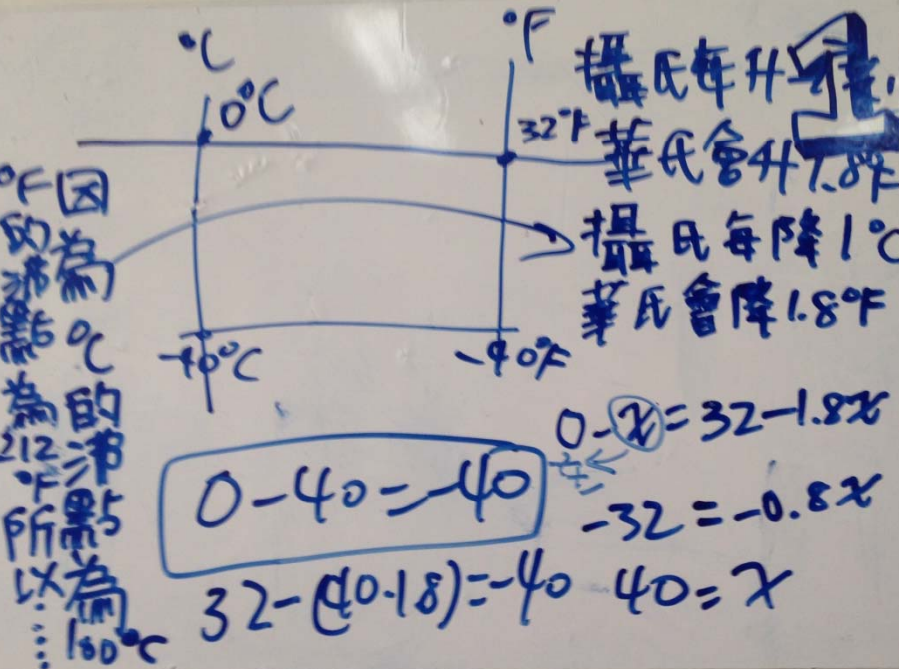 °C
°F
0°C
32°F
-40°C
-40°F
攝氏每升
華氏會升1.8°F
攝氏每降1°C
華氏會降1.8°F
因為°C的沸點為180°C
°F的沸點為212°F所以……
0-x=32-1.8x
-32=-0.8x
40=x
0-40=-40
32-(40·18)=-40
1